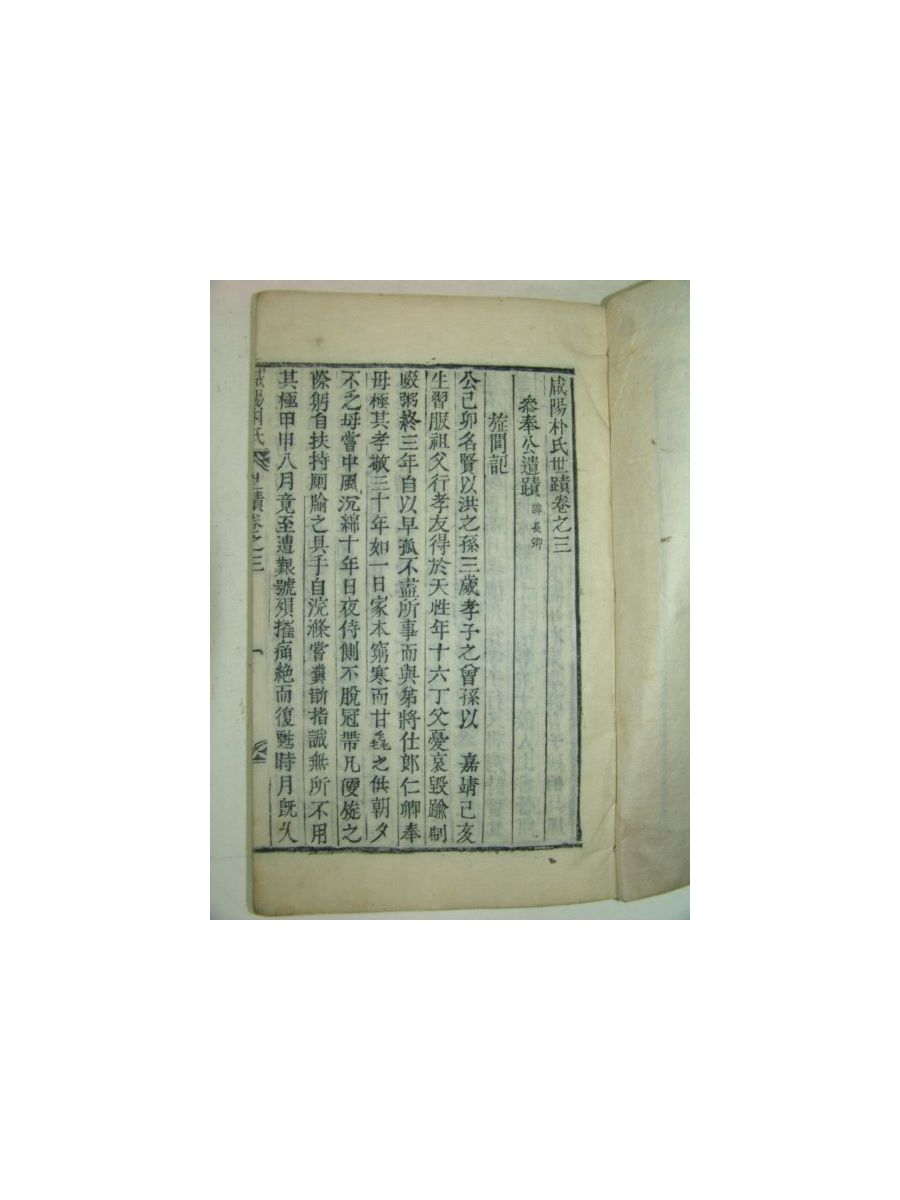 咸陽朴氏世蹟卷之三
叅奉公遺蹟 諱長卿
旌閭記
公己卯名賢以洪之孫三歲孝子之曾孫以 嘉靖己亥
生習服祖父行孝友得於天性年十六丁父憂哀毁踰制
啜粥終三年自以早孤不盡所事而與弟將仕郎仁卿奉
母極其孝敬三十年如一日家本窮寒而甘毳之供朝夕
不乏母嘗中風沉綿十年日夜侍側不脫冠帶凡便旋之
際躬自扶持厠牏之具手自浣滌嘗糞斷指誠無所不用
其極甲申八月竟至遭艱號殞擗痛絶而復甦時月旣久
咸陽朴氏世蹟卷之三 一